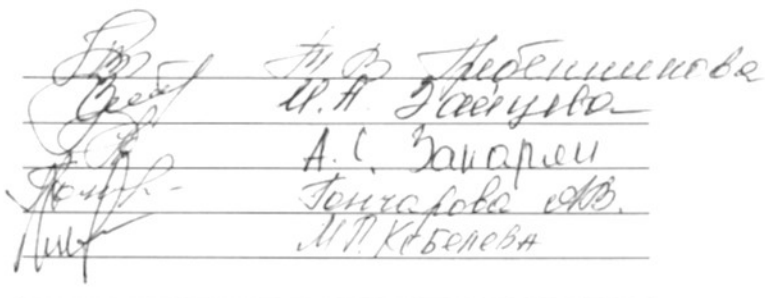 Т В Гребенщикова
И. А. Зайцева
А. С. Закарян
Гончарова А.В.
М.П. Кебелева